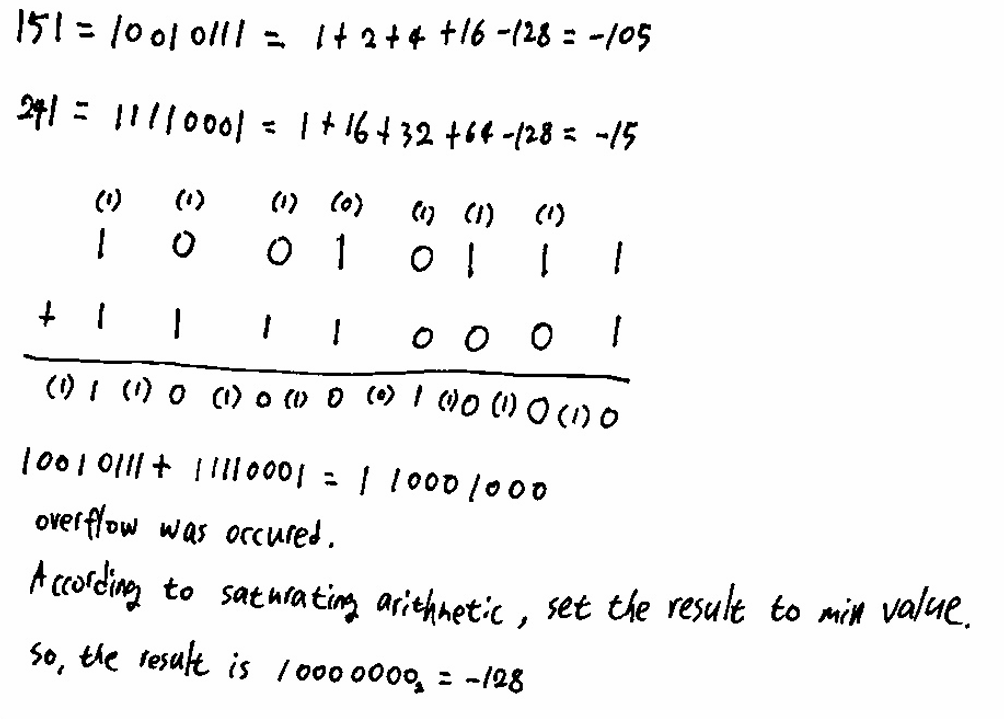 151 = 10010111 = 1+2+4+16-128 = -105
241 = 11110001 = 1+16+32+64-128 = -15
(1) (1) (1) (0) (1) (1) (1)
1 0 0 1 0 1 1 1
+ 1 1 1 1 0 0 0 1
(1) 1 (1) 0 (1) 0 (1) 0 (0) 1 (1) 0 (1) 0 (1) 0
10010111 + 11110001 = 1 10001000
overflow was occured.
According to saturating arithmetic, set the result to min value.
So, the result is 10000000₂ = -128